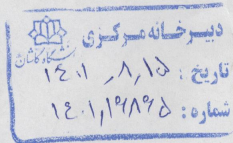 دبیرخانه مرکزی
دانشگاه کاشان
تاریخ : ۱۴۰۱٫۸٫۱۵
شماره :